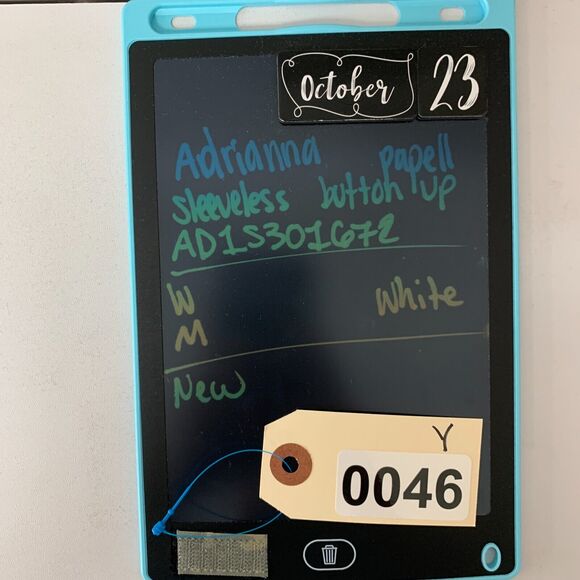 October 23
Adrianna papell
Sleeveless button up
AD1S301672
W White
M
New
Y
0046